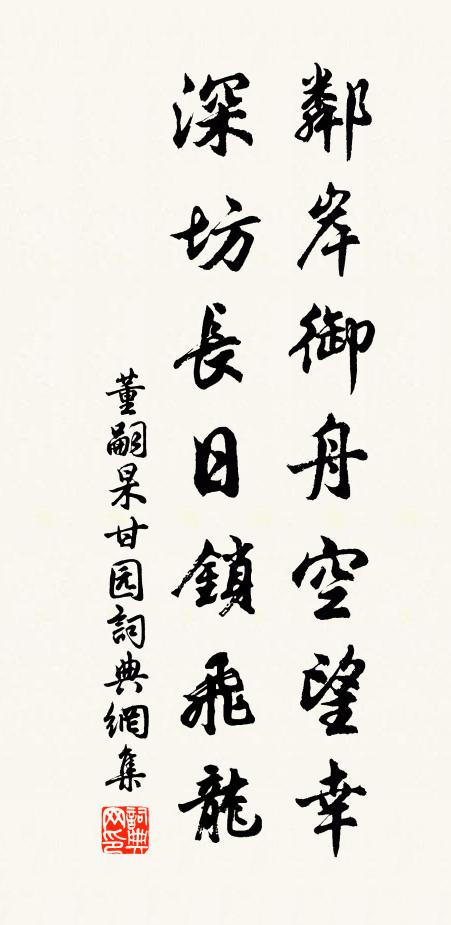 鄰岸御舟空望幸
深坊長日鎖飛龍
董嗣杲甘园詞典網集
詞典网印